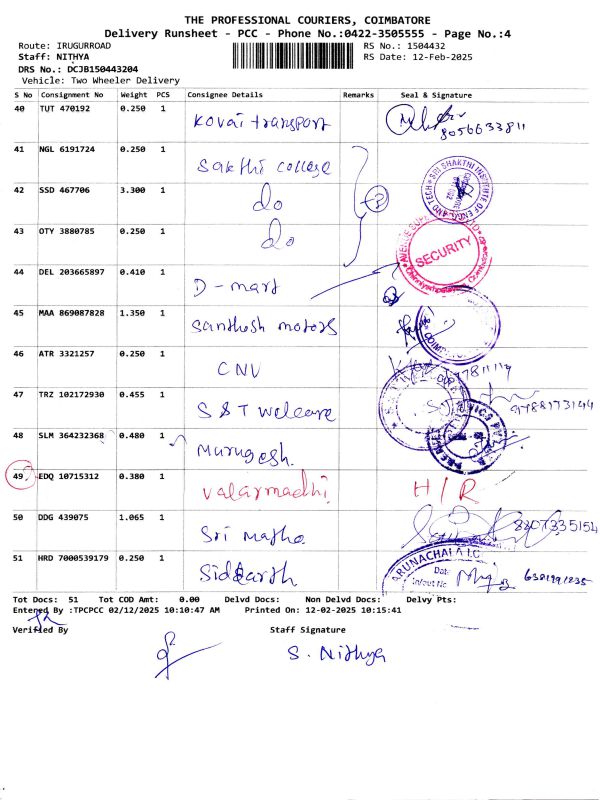 THE PROFESSIONAL COURIERS, COIMBATORE
Delivery Runsheet - PCC - Phone No.:0422-3505555 - Page No.:4
Route: IRUGURROAD RS No.: 1504432
Staff: NITHYA RS Date: 12-Feb-2025
DRS No.: DCJB150443204
Vehicle: Two Wheeler Delivery
S No Consignment No Weight PCS Consignee Details Remarks Seal & Signature
40 TUT 470192 0.250 1 Kovai transport 8056633811
41 NGL 6191724 0.250 1 Sakthi college
42 SSD 467706 3.300 1 do
43 OTY 3880785 0.250 1 do
SECURITY
44 DEL 203665897 0.410 1 D-mart
45 MAA 869087828 1.350 1 Santhosh motors
46 ATR 3321257 0.250 1 CNV
47 TRZ 102172930 0.455 1 S S T welcare 9788173144
48 SLM 364232368 0.480 1 Murugesh.
49 EDQ 10715312 0.380 1 Valarmadhi H/R
50 DDG 439075 1.065 1 Sri Matha 8807335154
51 HRD 7000539179 0.250 1 Siddarth
ARUNACHALA
Tot Docs: 51 Tot COD Amt: 0.00 Delvd Docs: Non Delvd Docs: Delvy Pts:
Entered By :TPCPCC 02/12/2025 10:10:47 AM Printed On: 12-02-2025 10:15:41
Verified By Staff Signature
S. Nithya